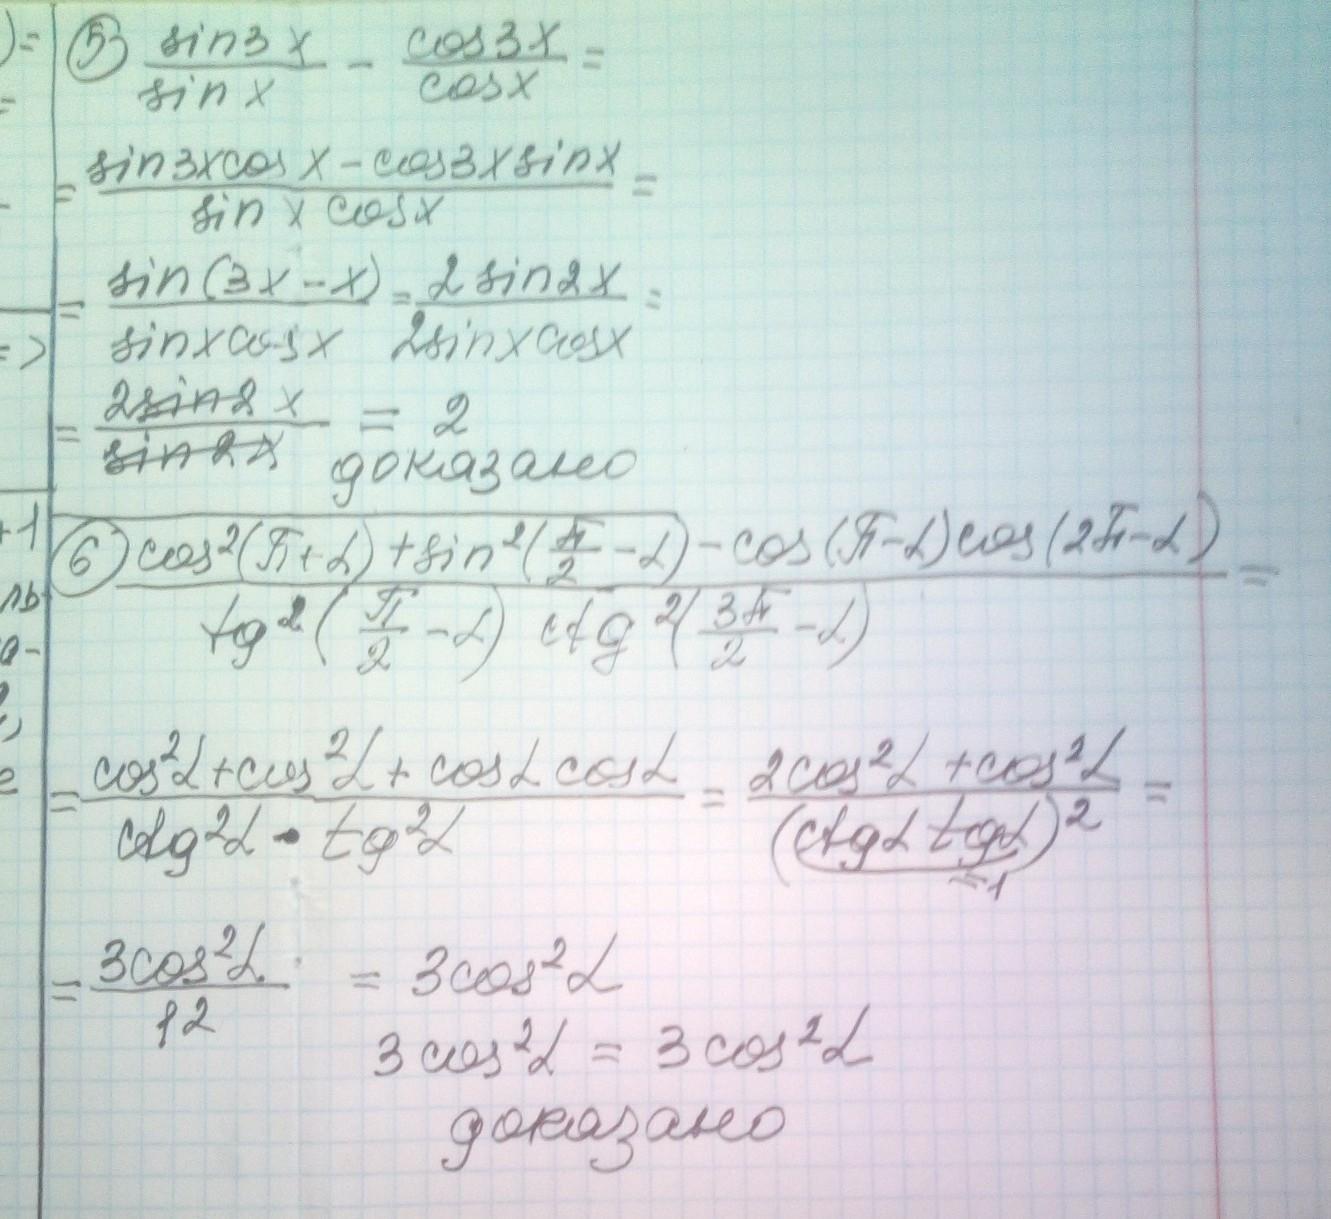 )=
=
=>
+1
5) sin3x/sinx − cos3x/cosx =
= (sin3xcosx − cos3xsinx)/(sinx cosx) =
= sin(3x−x)/(sinxcosx) = 2sin2x/(2sinxcosx) =
= 2sin2x/sin2x = 2
доказано
6) (cos²(π+α)+sin²(π/2−α)−cos(π−α)cos(2π−α))/(tg²(π/2−α) ctg²(3π/2−α)) =
= (cos²α+cos²α+cosα cosα)/(ctg²α · tg²α) = (2cos²α+cos²α)/(ctgα tgα)² =
=1
= 3cos²α/1² = 3cos²α
3cos²α = 3cos²α
доказано